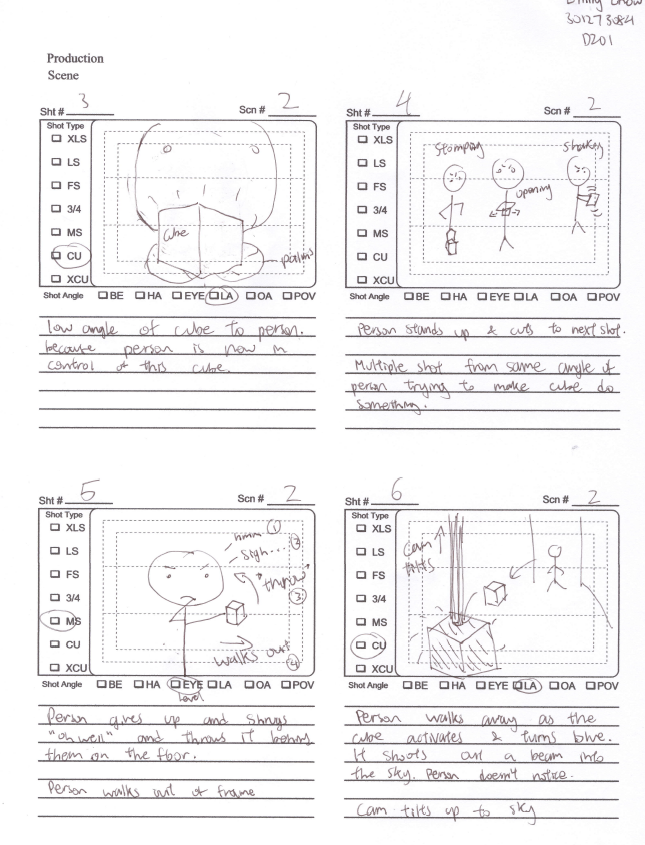 301273084
D201
Production
Scene
Sht # 3
Scn # 2
Shot Type
XLS
LS
FS
3/4
MS
CU
XCU
cube
palms
Shot Angle BE HA EYE LA OA POV
low angle of cube to person.
because person is now in
control of this cube.
Sht # 4
Scn # 2
Shot Type
XLS
LS
FS
3/4
MS
CU
XCU
Stomping
opening
Shaking
Shot Angle BE HA EYE LA OA POV
Person stands up & cuts to next shot.
Multiple shot from same angle of
person trying to make cube do
something.
Sht # 5
Scn # 2
Shot Type
XLS
LS
FS
3/4
MS
CU
XCU
hmm. 1
sigh... 2
"throw" 3
walks out 4
Shot Angle BE HA EYE LA OA POV
Level
Person gives up and shrugs
"oh well" and throws it behind
them on the floor.
Person walks out of frame
Sht # 6
Scn # 2
Shot Type
XLS
LS
FS
3/4
MS
CU
XCU
Cam
tilts
Shot Angle BE HA EYE LA OA POV
Person walks away as the
cube activates & turns blue.
It shoots out a beam into
the sky. Person doesn't notice.
Cam tilts up to sky